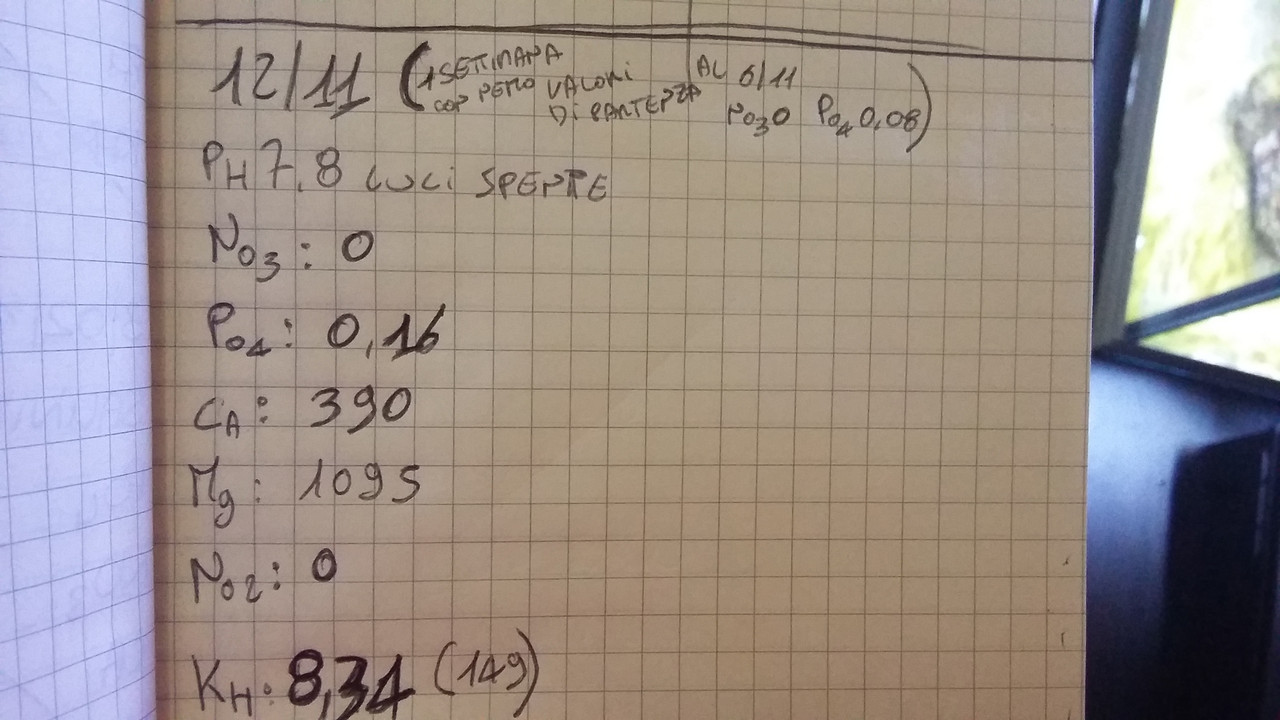 12/11 (1 SETTIMANA CON NEMO VALORI DI PARTENZA AL 6/11 NO3 0 PO4 0,08)
PH 7,8 LUCI SPENTE
NO3: 0
PO4: 0,16
CA: 390
Mg: 1095
NO2: 0
KH: 8,34 (149)